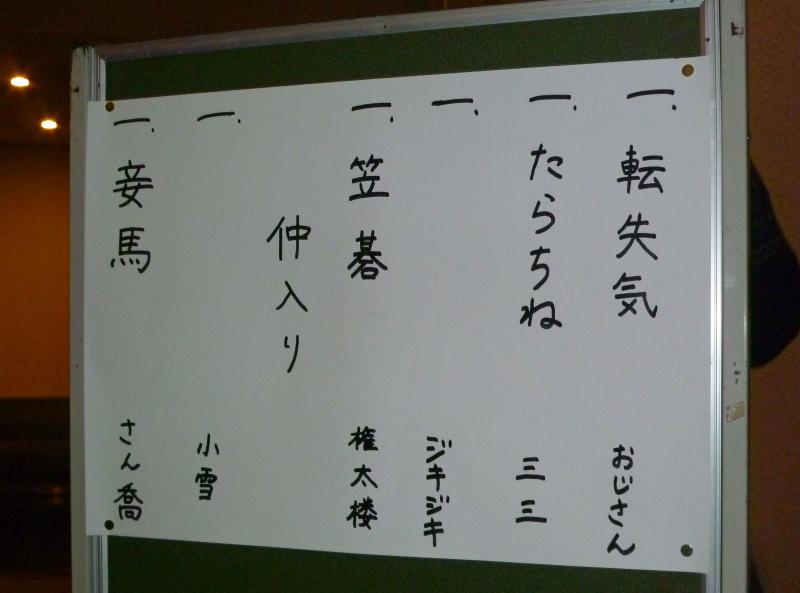 一、転失気 おじさん
一、たらちね 三三
一、 ジキジキ
一、笠碁 権太楼
仲入り
一、 小雪
一、妾馬 さん喬